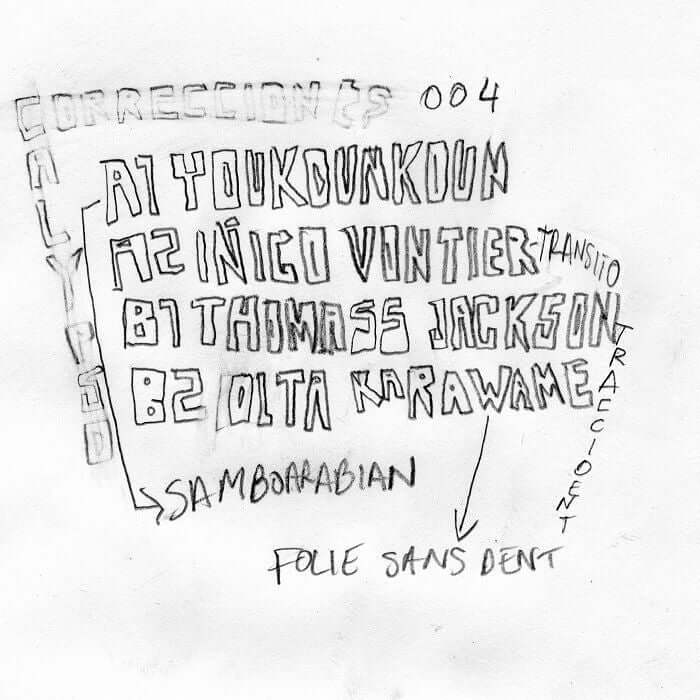 CORRECCIONES 004
CALYPSO
A1 YOUKOUNKOUN
A2 IÑIGO VONTIER-TRANSITO
B1 THOMASS JACKSON
TRACCIDENT
B2 OLTA KARAWANE
SAMBOARABIAN
FOLIE SANS DENT